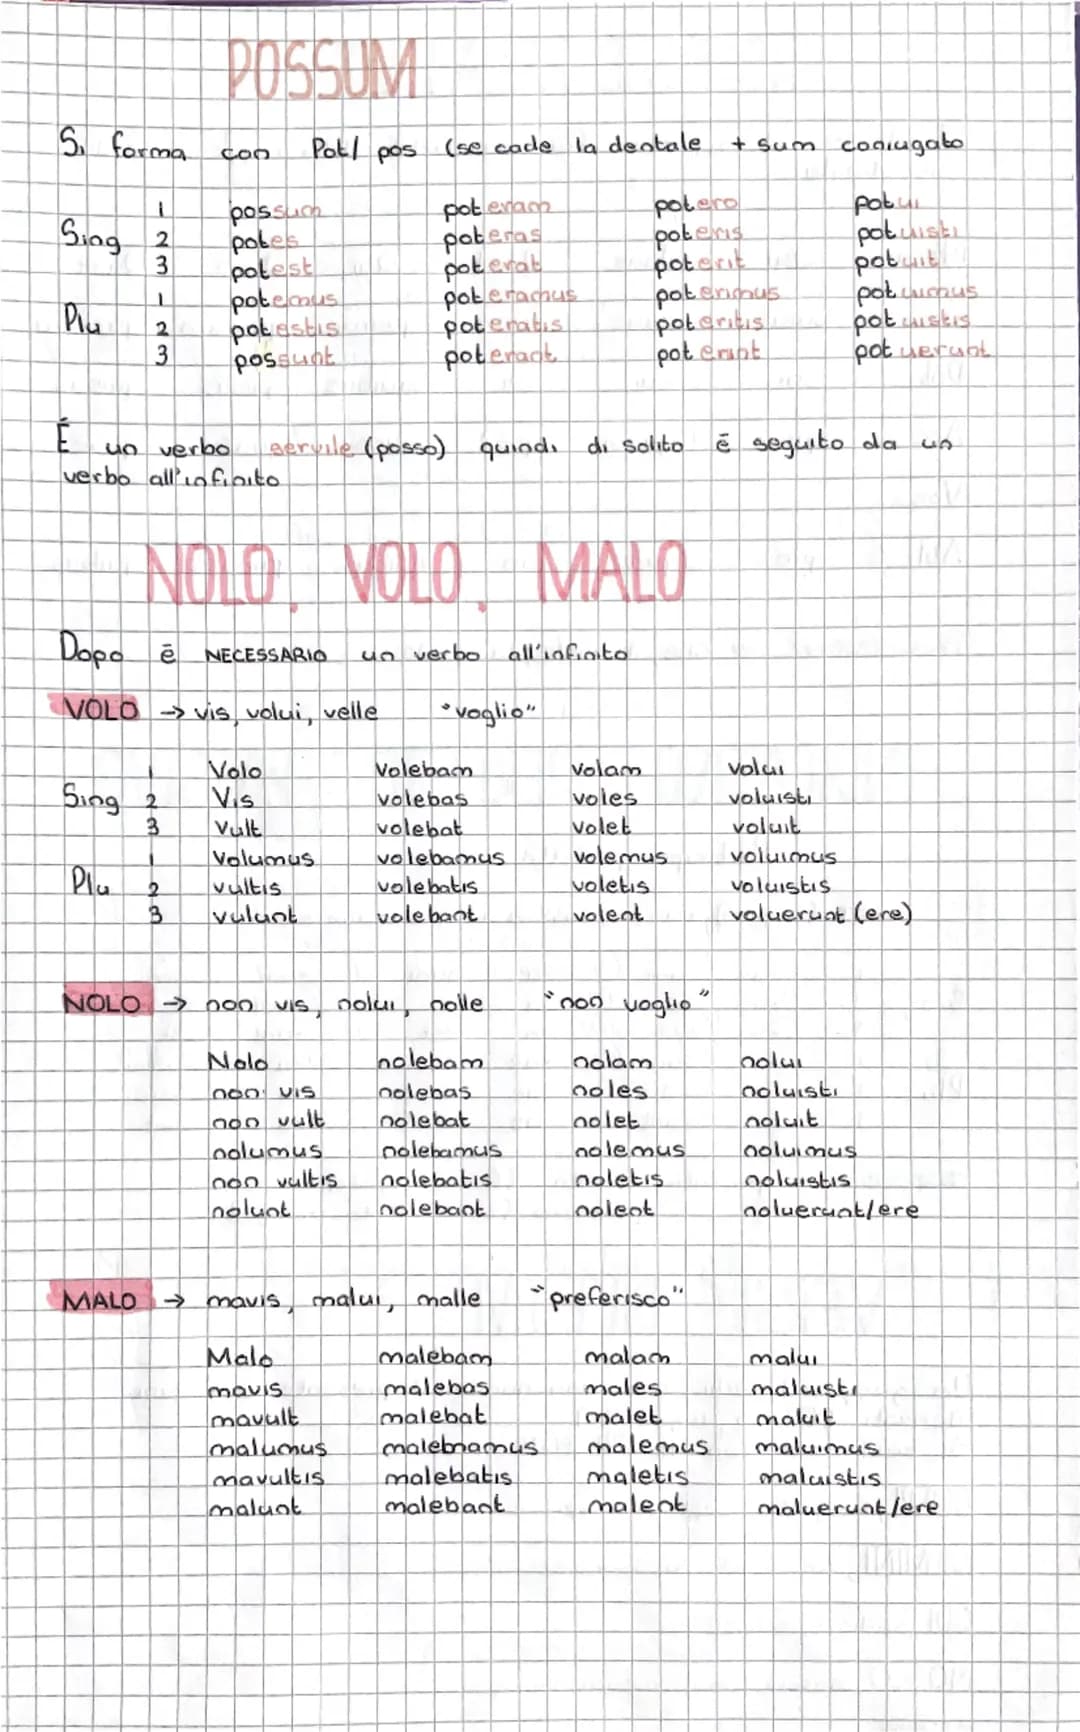 POSSUM
Si forma con Pot/ pos (se cade la dentale + sum coniugato
1 possum poteram potero potui
Sing 2 potes poteras poteris potuisti
3 potest poterat poterit potuit
1 potemus poteramus poterimus potuimus
Plu 2 potestis poteratis poteritis potuistis
3 possunt poterant poterint potuerunt
É un verbo servile (posso) quindi di solito ē seguito da un
verbo all'infinito
NOLO, VOLO, MALO
Dopo ē NECESSARIO un verbo all'infinito
VOLO → vis, volui, velle "voglio"
1 Volo Volebam volam volui
Sing 2 Vis volebas voles voluisti
3 Vult volebat volet voluit
1 Volumus volebamus volemus voluimus
Plu 2 vultis volebatis voletis voluistis
3 vulunt volebant volent voluerunt (ere)
NOLO → non vis, nolui, nolle "non voglio"
Nolo nolebam nolam nolui
non vis nolebas noles noluisti
non vult nolebat nolet noluit
nolumus nolebamus nolemus noluimus
non vultis nolebatis noletis noluistis
nolunt nolebant nolent noluerunt/ere
MALO → mavis, malui, malle "preferisco"
Malo malebam malam malui
mavis malebas males maluisti
mavult malebat malet maluit
malumus malebnamus malemus maluimus
mavultis malebatis maletis maluistis
malunt malebant malent maluerunt/ere